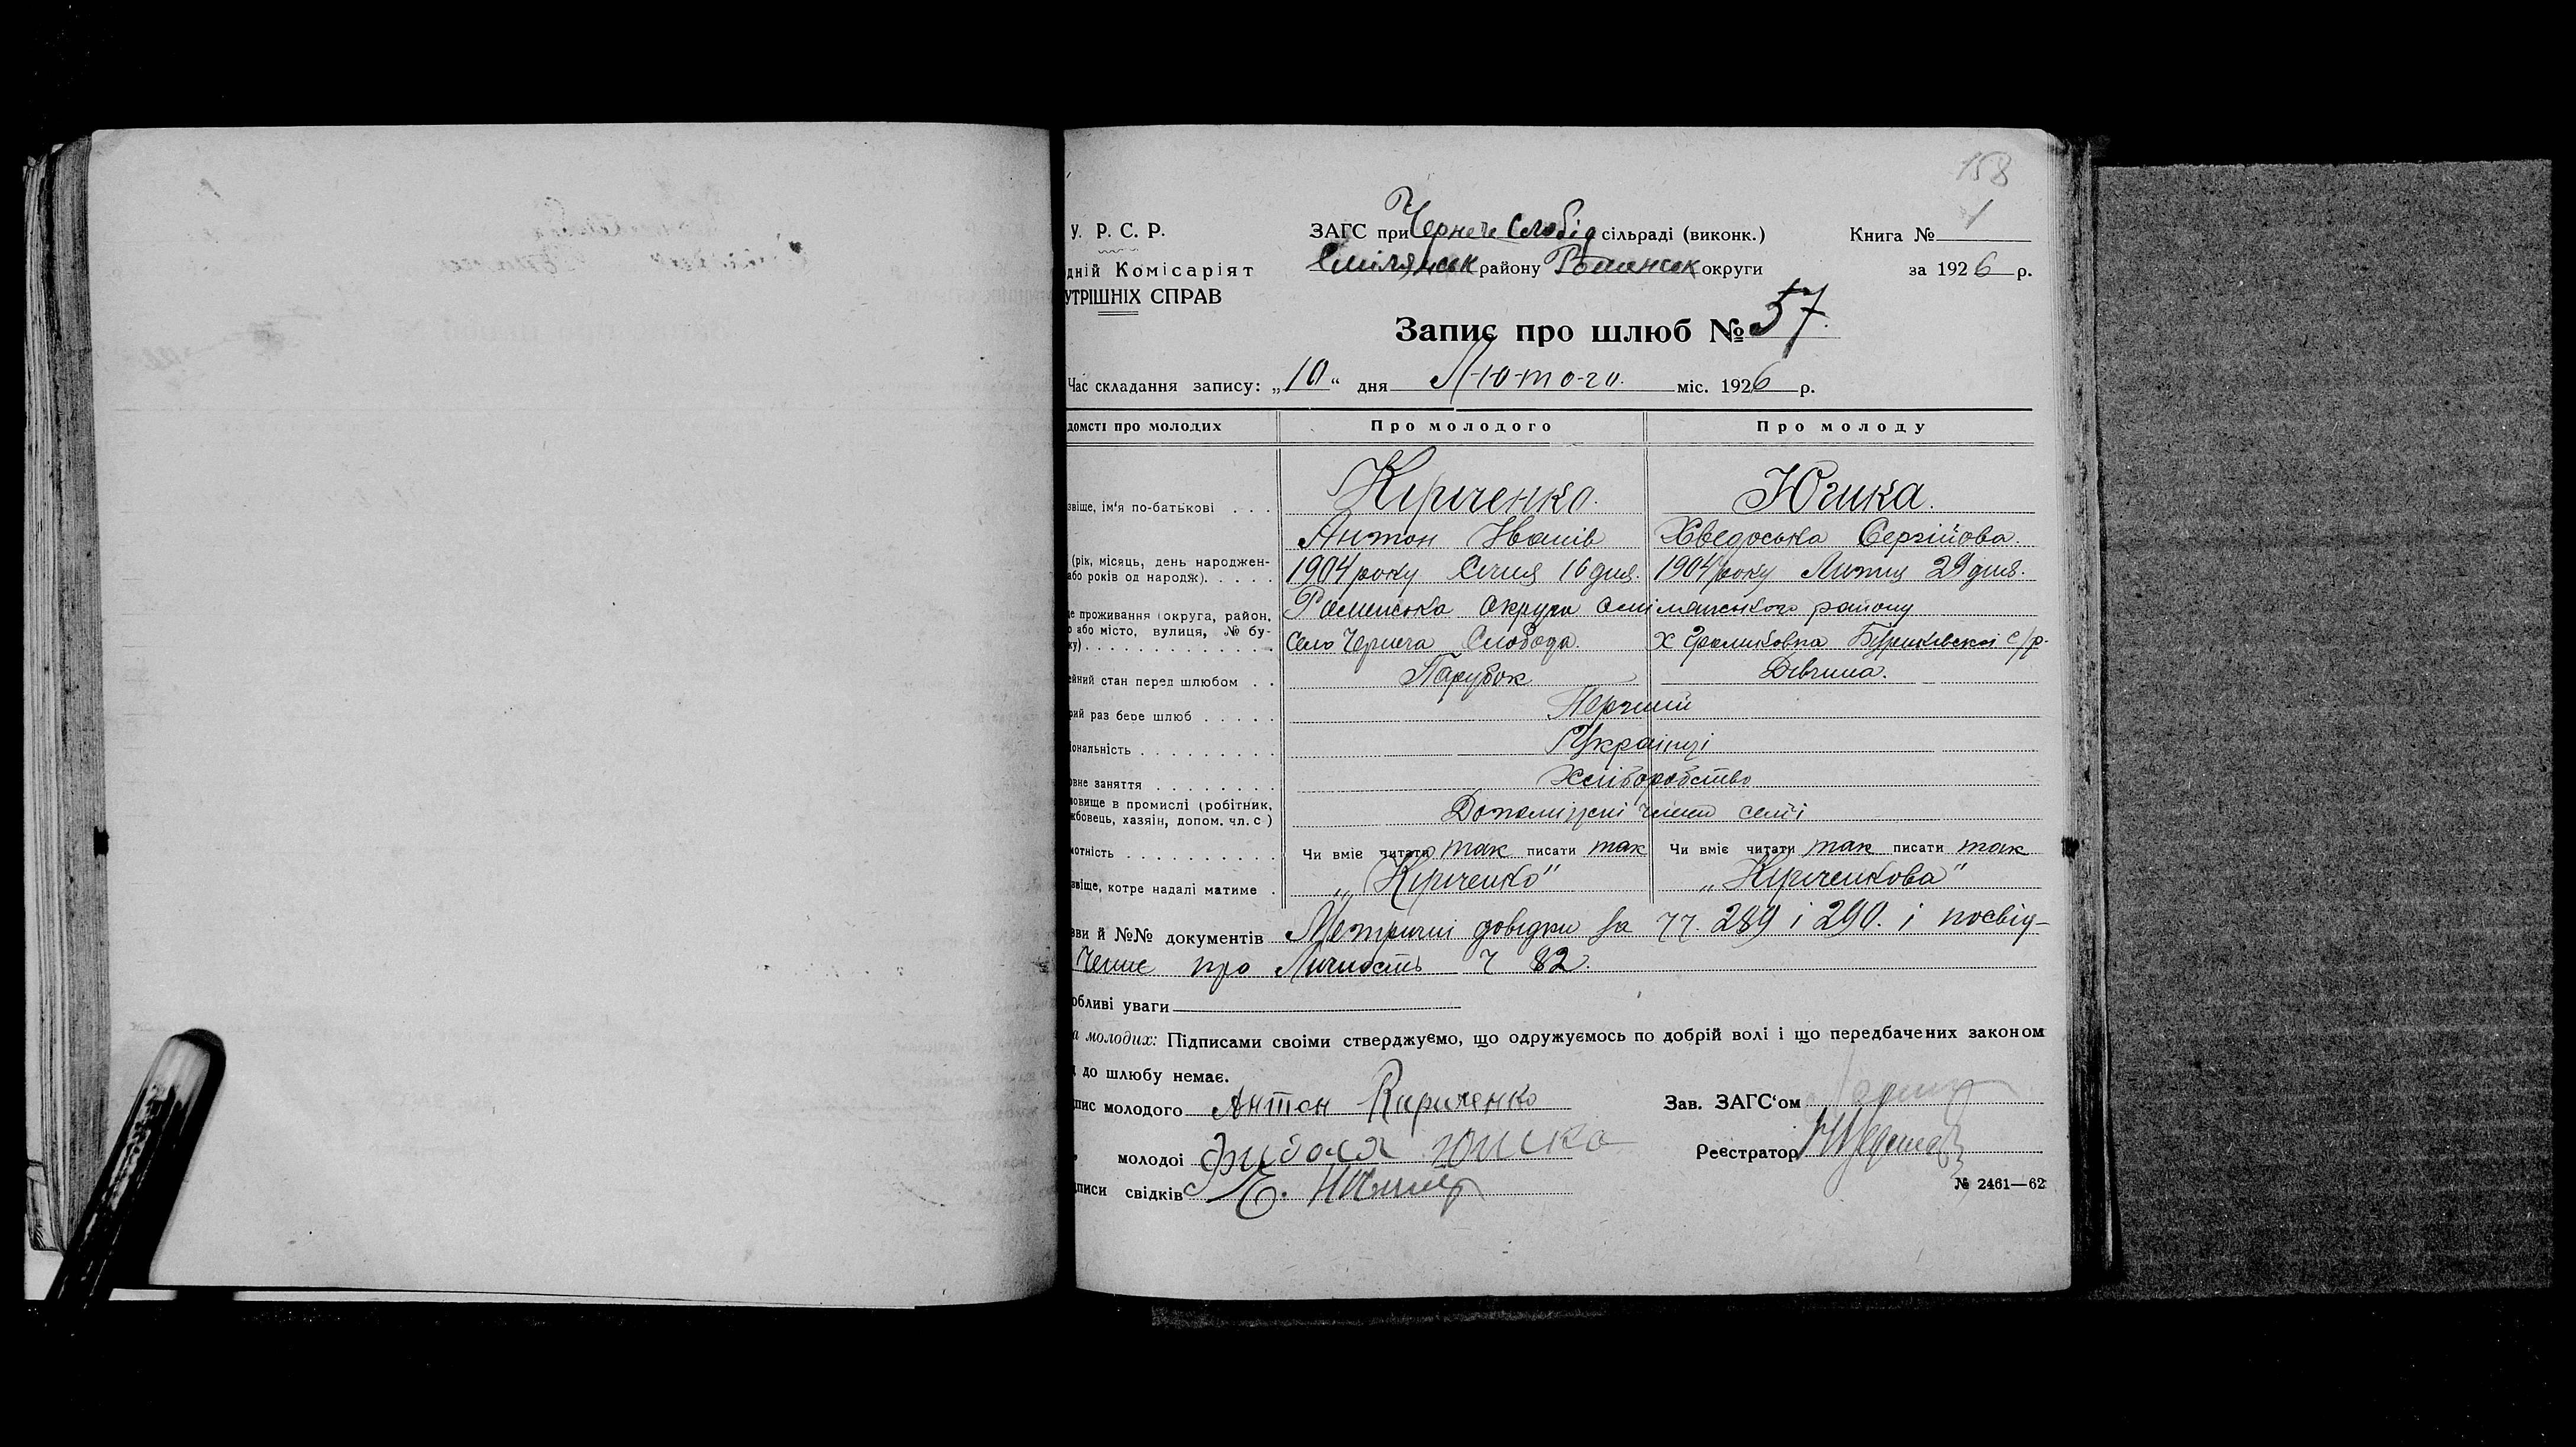 158
У. Р. С. Р.
ЗАГС при Чернече Слобід сільраді (виконк.)
Книга № 1
дній Комісаріят
Смілянськ району Роменськ округи
за 1926 р.
УТРІШНІХ СПРАВ
Запис про шлюб № 57.
Час складання запису: „10“ дня Лютого міс. 1926 р.
домсті про молодих
Про молодого
Про молоду
звіще, ім'я по-батькові . . .
Кіріченко.
Юшка.
Антон Іванів
Хведоська Сергійова.
(рік, місяць, день народжен-
або років од народж). . . . .
1904 року Січня 16 дня.
1904 року Липця 29 дня.
е проживання (округа, район,
о або місто, вулиця, № бу-
ку) . . . . . . . . . . . . . .
Роменська округи Смілянського району
Село Чернеча Слобода.
Х с/р.
ейний стан перед шлюбом . .
Парубок
Дівчина.
рий раз бере шлюб . . . . .
Перший
іональність . . . . . . . . . .
Українці
овне заняття . . . . . . . .
Хліборобство
новище в промислі (робітник,
жбовець, хазяін, допом. чл. с)
Допоміжні члени семї
мотність . . . . . . . . . . .
Чи вміє читати так писати так
Чи вміє читати так писати так
звіще, котре надалі матиме .
„Кіріченко"
„Кіріченкова"
зви й №№ документів Метричні довідки за ЧЧ. 289 і 290. і посвід-
чення про Личность Ч 82.
обливі уваги
а молодих: Підписами своіми стверджуємо, що одружуємось по добрій волі і що передбачених законом
д до шлюбу немає.
пис молодого Антон Кириченко
Зав. ЗАГС'ом
„ молодоі Юшка
Реєстратор
дписи свідків Є.
№ 2461—62